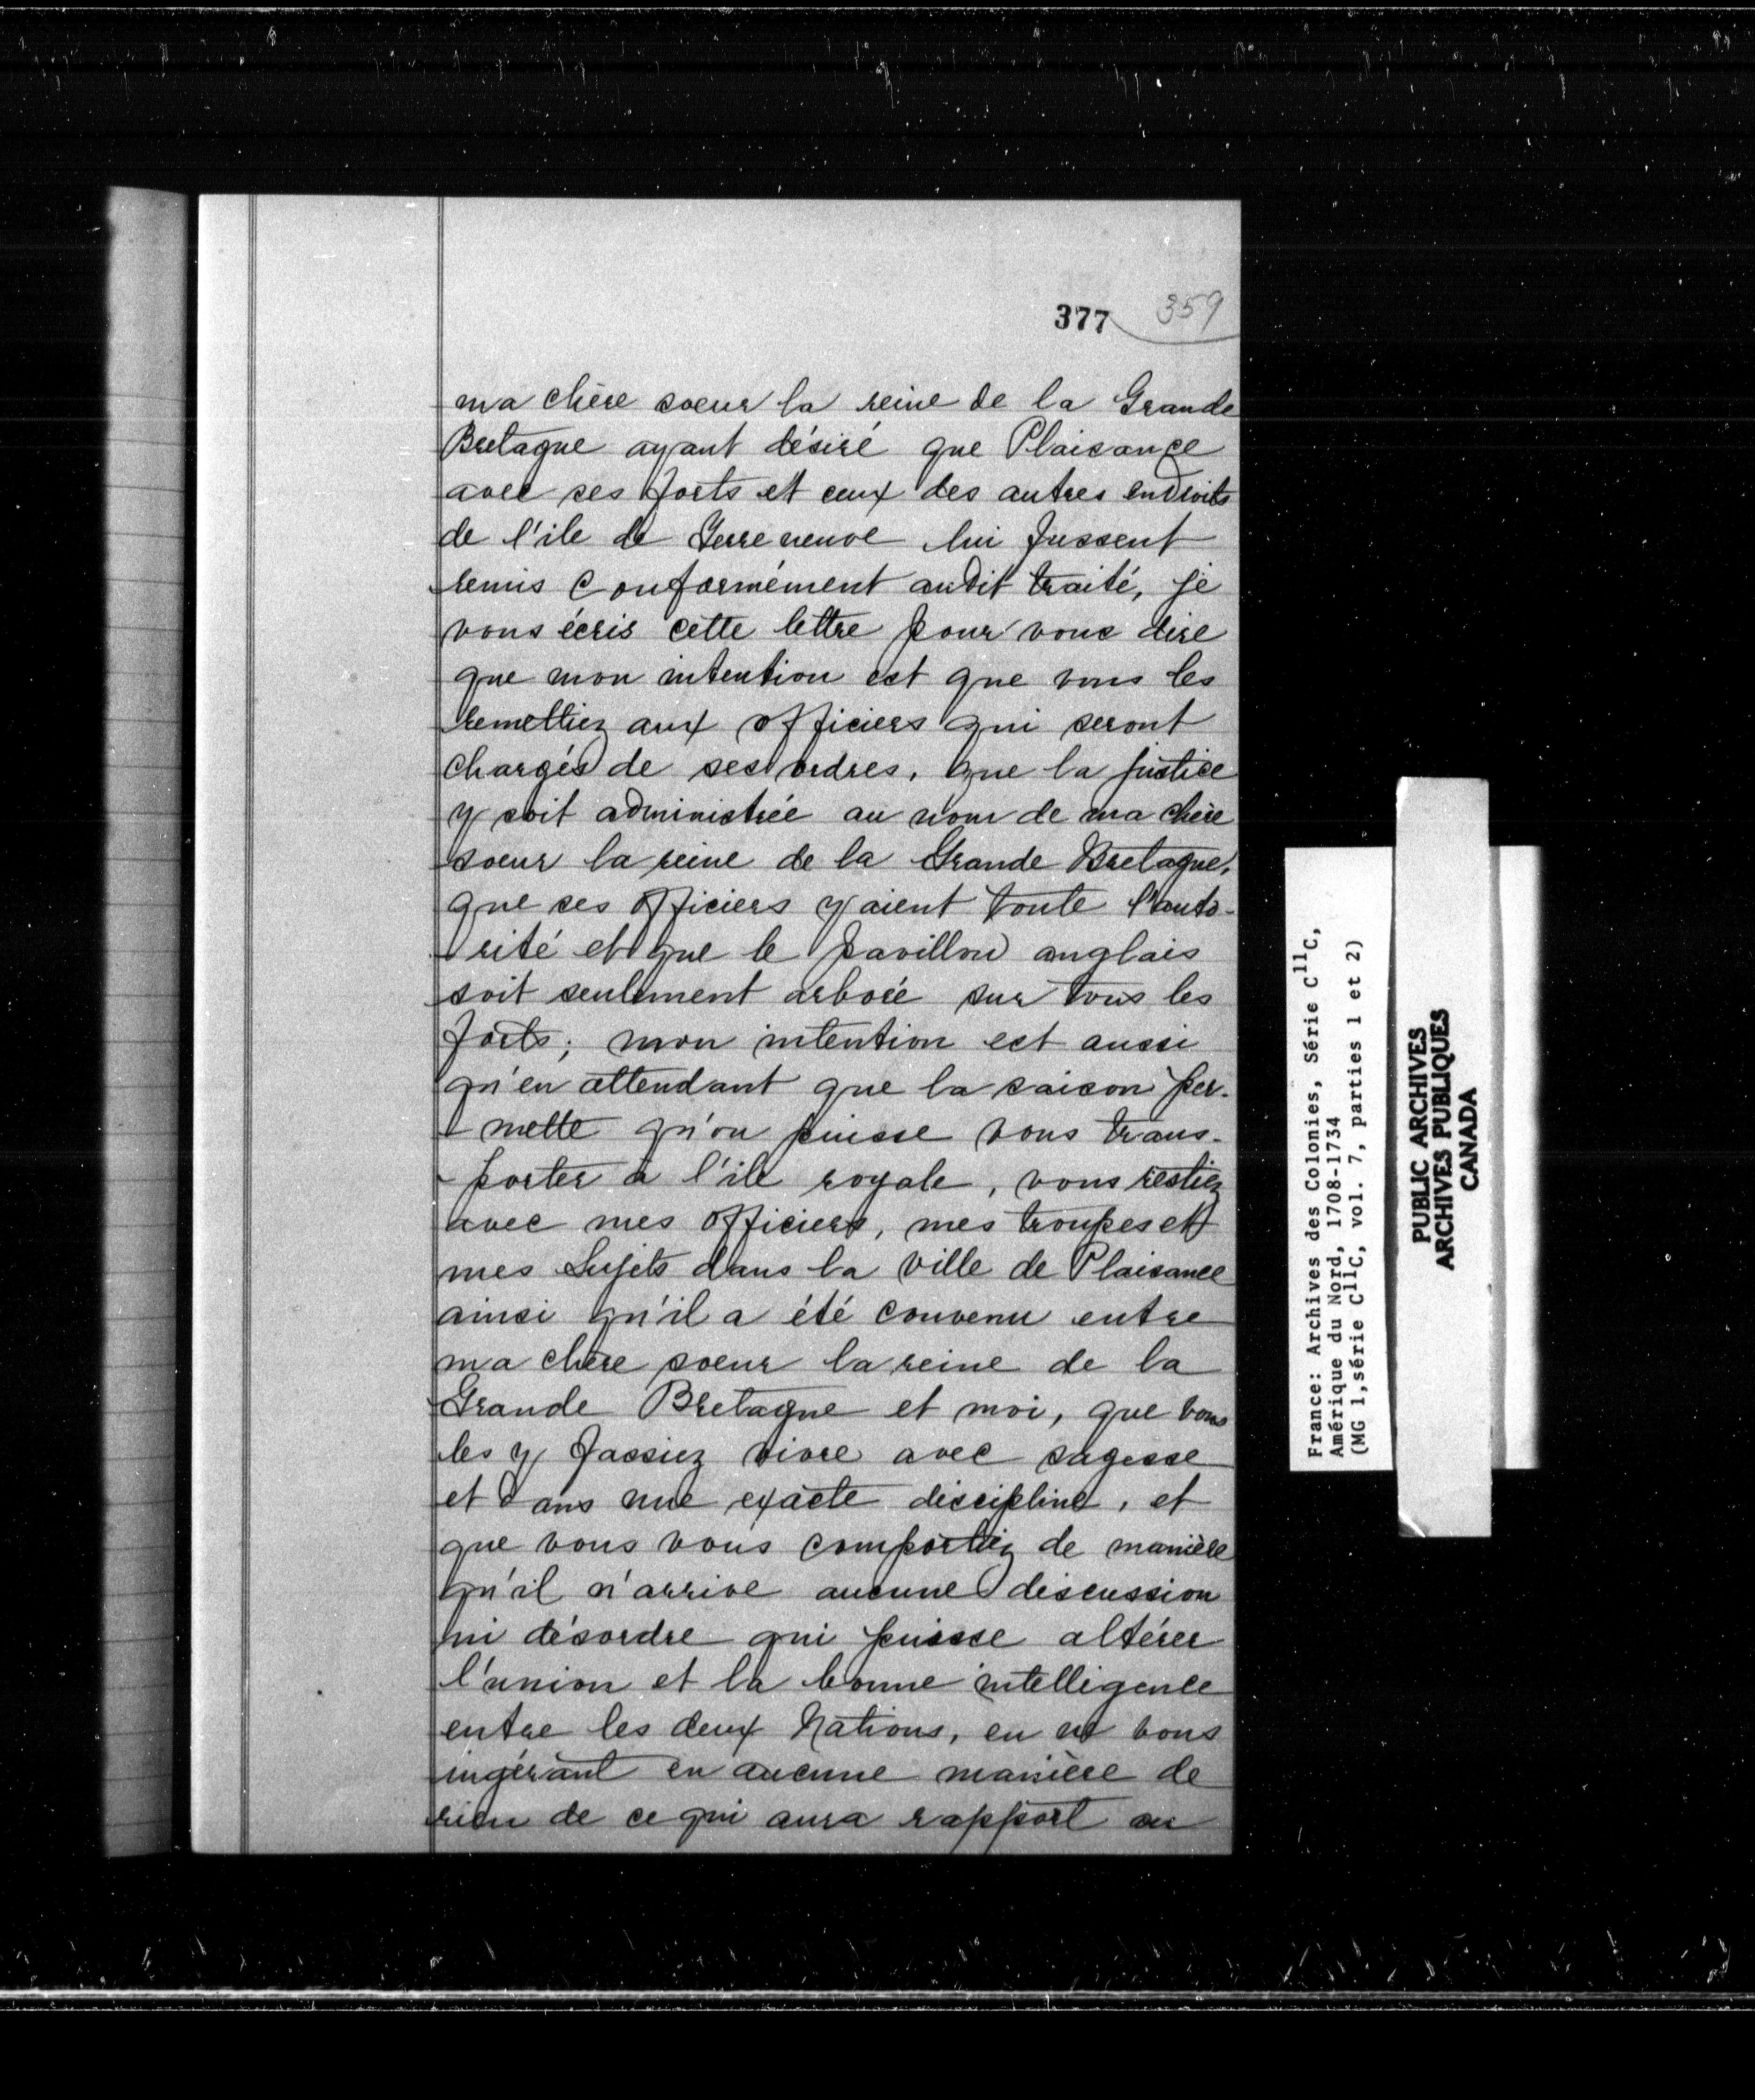 377 359
ma chère soeur la reine de la Grande
Bretagne ayant désiré que Plaisance
avec ses forts et ceux des autres endroits
de l'ile de Terre neuve lui fussent
remis conformément audit traité, je
vous écris cette lettre pour vous dire
que mon intention est que vous les
remettiez aux officiers qui seront
chargés de ses ordres, que la justice
y soit administrée au nom de ma chère
soeur la reine de la Grande Bretagne,
que ses officiers y aient toute l'auto-
rité et que le pavillon anglais
soit seulement arboré sur tous les
forts; mon intention est aussi
qu'en attendant que la saison per-
mette qu'on puisse vous trans-
porter à l'ile royale, vous restiez
avec mes officiers, mes troupes et
mes Sujets dans la ville de Plaisance
ainsi qu'il a été convenu entre
ma chère soeur la reine de la
Grande Bretagne et moi, que vous
les y fassiez vivre avec sagesse
et dans une exacte discipline, et
que vous vous comportiez de manière
qu'il n'arrive aucune discussion
ni désordre qui puisse altérer
l'union et la bonne intelligence
entre les deux Nations, en ne vous
ingérant en aucune manière de
rien de ce qui aura rapport au
France: Archives des Colonies, Série C11C,
Amérique du Nord, 1708-1734
(MG 1, série C11C, vol. 7, parties 1 et 2)
PUBLIC ARCHIVES
ARCHIVES PUBLIQUES
CANADA